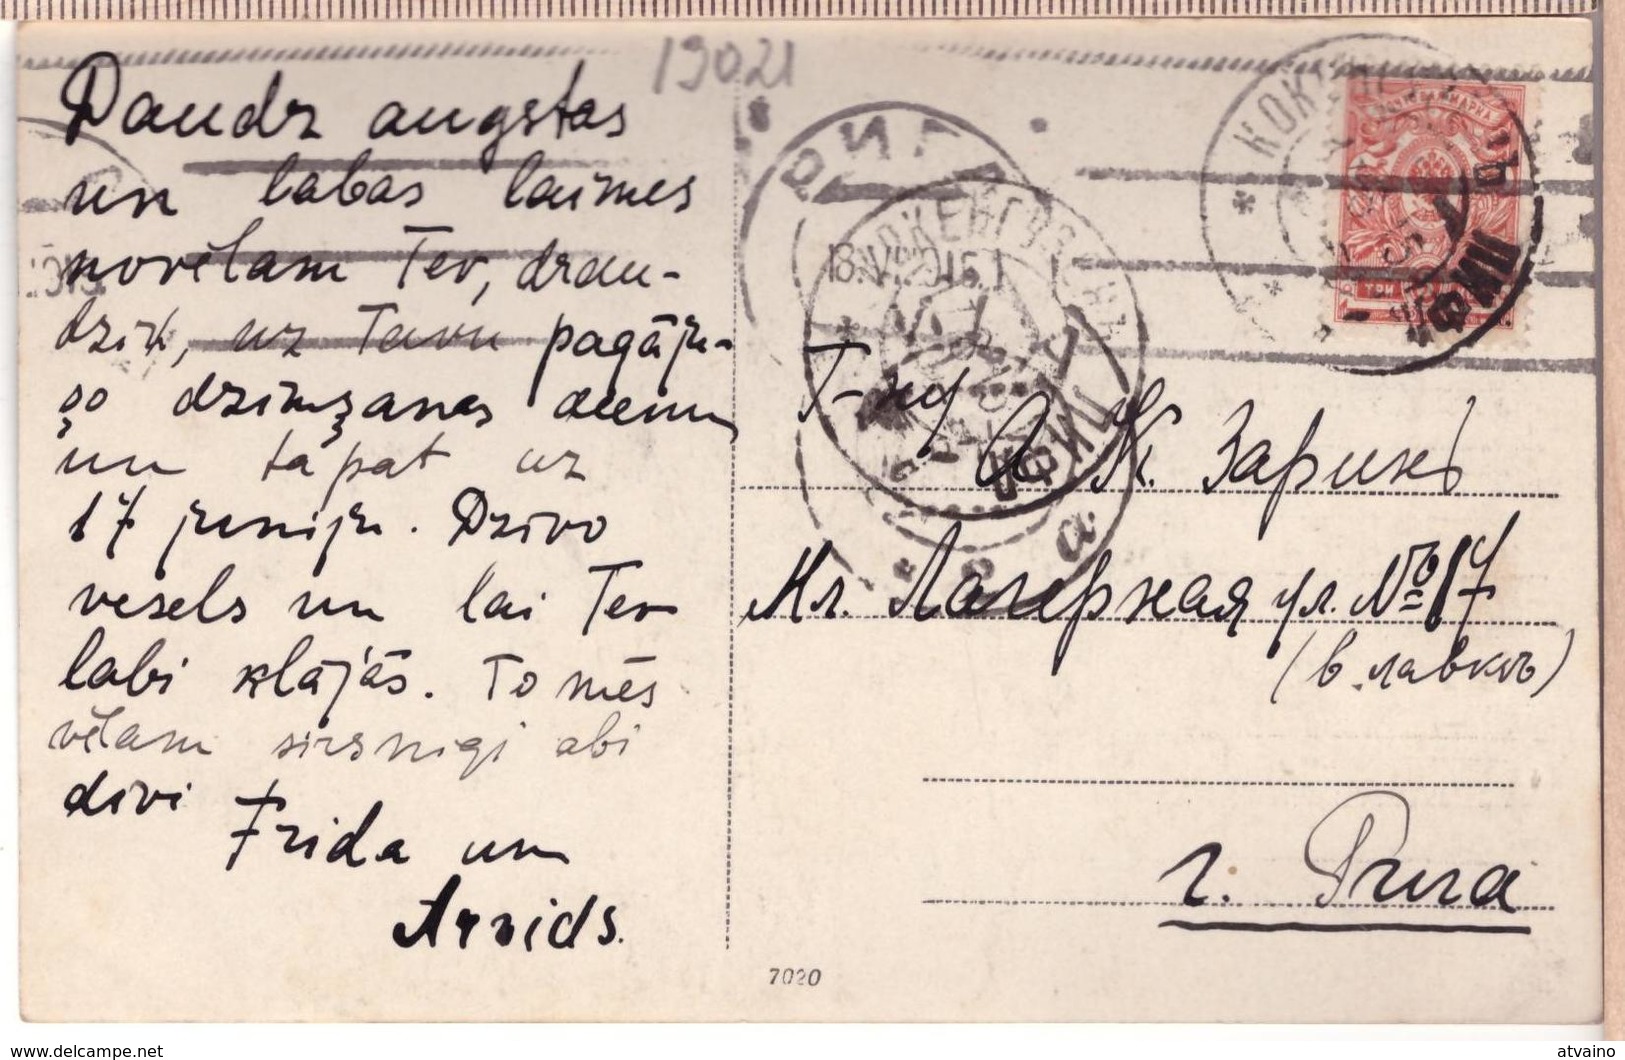 19021
Daudz augstas
un labas laimes
novēlam Tev, drau-
dziņ, uz Tavu pagāju-
šo dzimšanas dienu
un tāpat uz
17 juniju. Dzīvo
vesels un lai Tev
labi klājās. To mēs
vēlam sirsnigi abi
divi
Frida un
Arvids.
РИГА
18.VI.1916
Г-ну
А. К. Заринъ
Мл. Лагерная ул. № 17
(в. лавкѣ)
г. Рига
7020
delcampe.net
atvaino